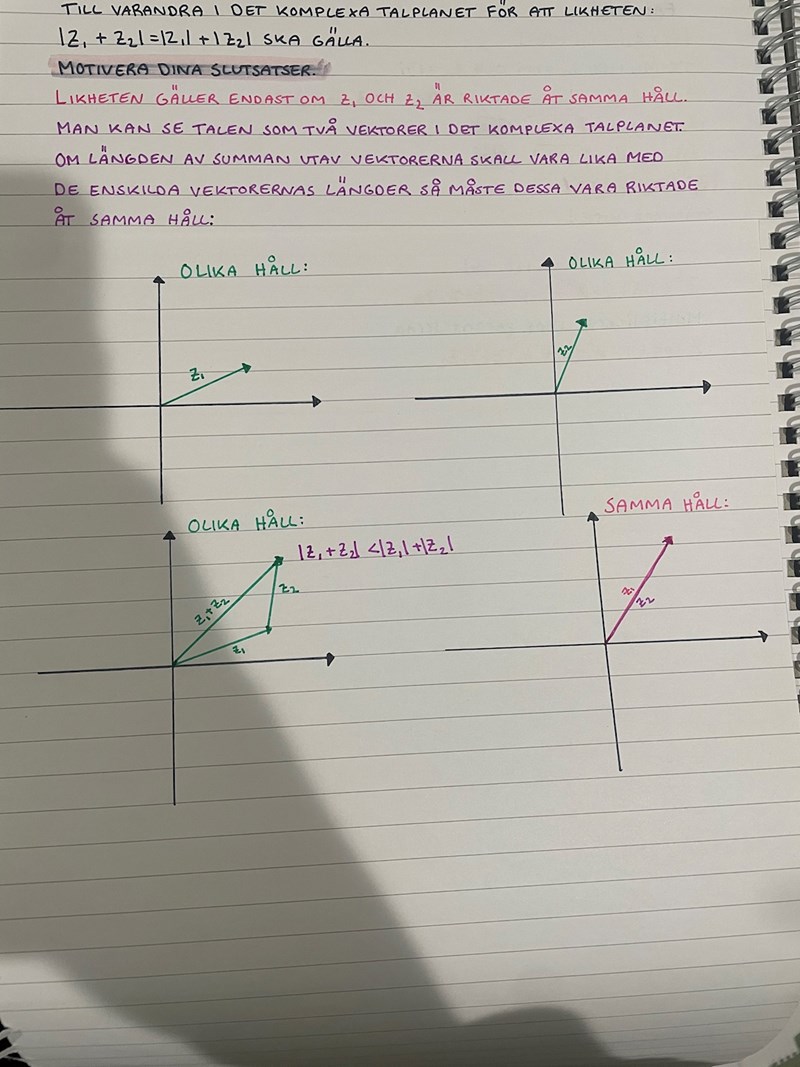 TILL VARANDRA I DET KOMPLEXA TALPLANET FÖR ATT LIKHETEN:
|Z₁ + Z₂|=|Z₁|+|Z₂| SKA GÄLLA.
MOTIVERA DINA SLUTSATSER.
LIKHETEN GÄLLER ENDAST OM Z₁ OCH Z₂ ÄR RIKTADE ÅT SAMMA HÅLL.
MAN KAN SE TALEN SOM TVÅ VEKTORER I DET KOMPLEXA TALPLANET.
OM LÄNGDEN AV SUMMAN UTAV VEKTORERNA SKALL VARA LIKA MED
DE ENSKILDA VEKTORERNAS LÄNGDER SÅ MÅSTE DESSA VARA RIKTADE
ÅT SAMMA HÅLL:
OLIKA HÅLL:
Z₁
OLIKA HÅLL:
Z2
OLIKA HÅLL:
|Z₁+Z₂| <|Z₁|+|Z₂|
Z₁+Z2
Z2
Z₁
SAMMA HÅLL:
Z₁
Z2